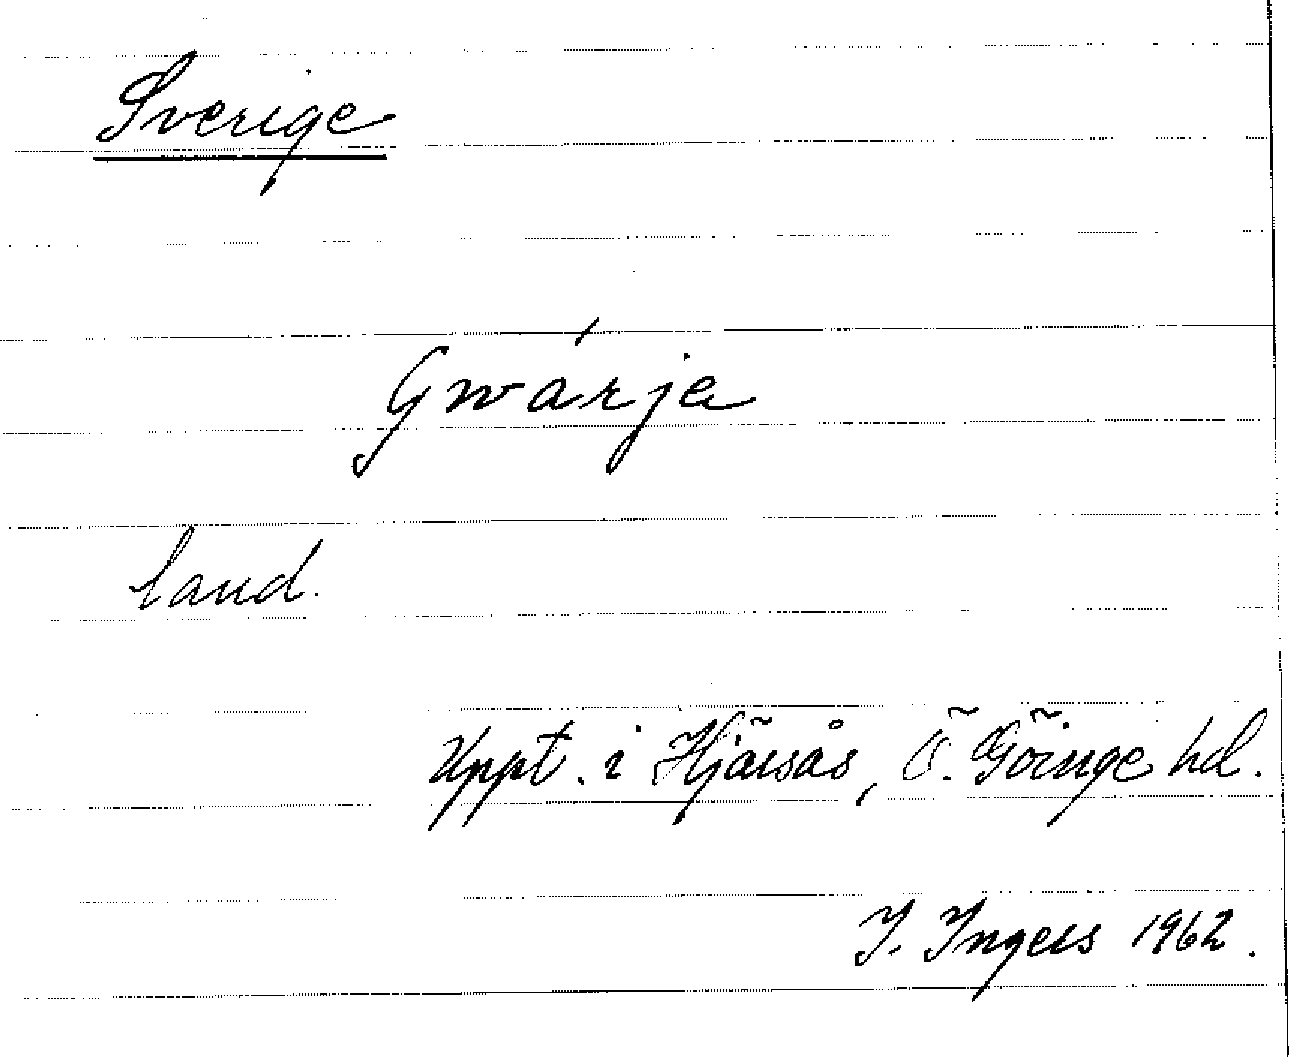 Sverige
Gwárja
land.
Uppt. i Hjärsås, Ö. Göinge hd.
I. Ingers 1962.